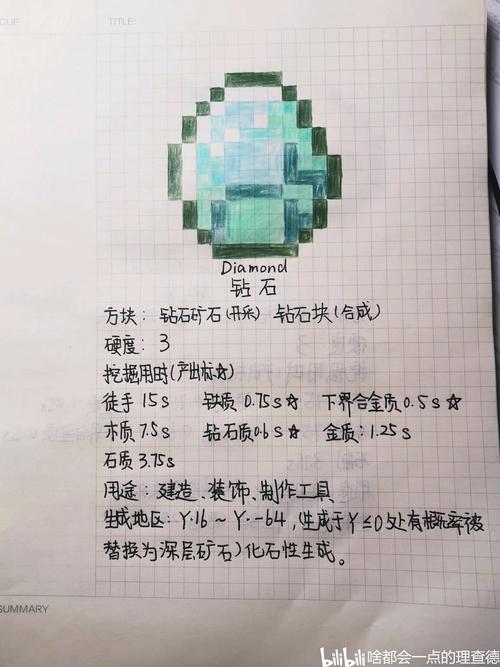 CUE
TITLE:
Diamond
钻石
方块：钻石矿石(开采) 钻石块(合成)
硬度：3
挖掘用时(产出标☆)
徒手 15s 铁质 0.75s☆ 下界合金质0.5s☆
木质 7.5s 钻石质0.6s☆ 金质：1.25s
石质 3.75s
用途：建造、装饰、制作工具
生成地区：Y·16 ~ Y·-64，(生成于Y≤0处有概率被
替换为深层矿石)化石性生成。
SUMMARY
bilibili 啥都会一点的理查德